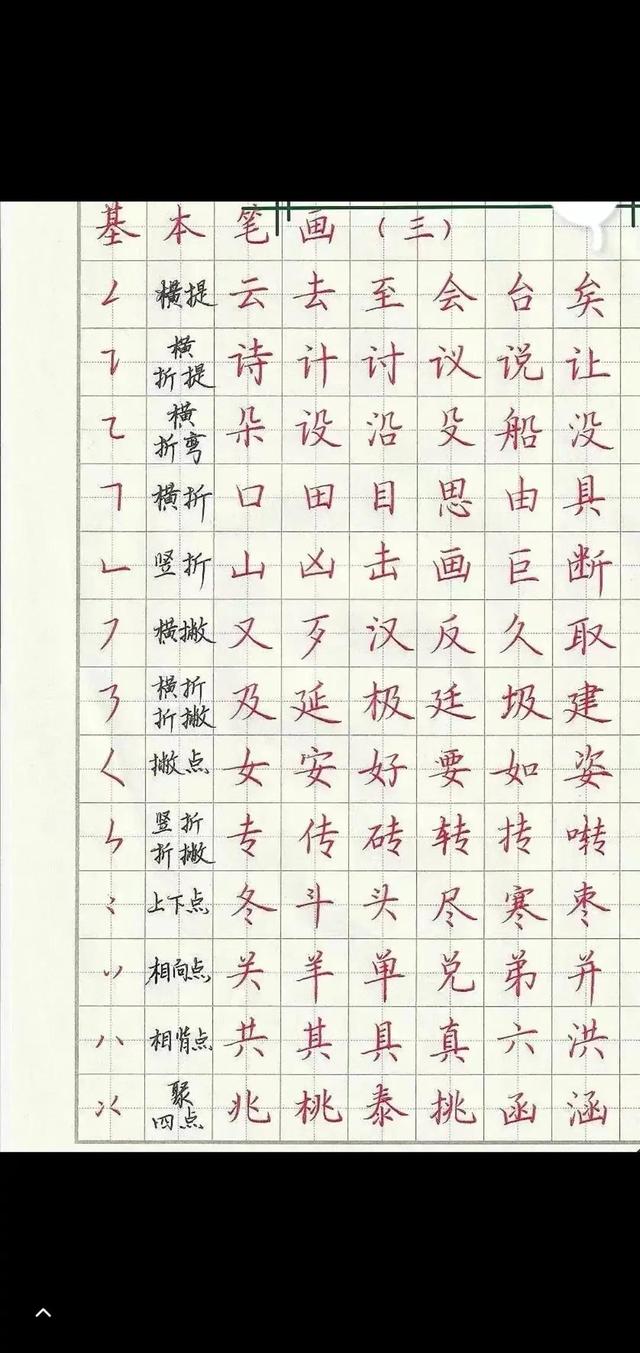 基本笔画（三）
㇀ 横提 云去至会台矣
㇊ 横折提 诗计讨议说让
㇍ 横折弯 朵设沿殳船没
𠃍 横折 口田目思由具
𠃊 竖折 山凶击画巨断
㇇ 横撇 又歹汉反久取
㇋ 横折折撇 及延极廷圾建
𡿨 撇点 女安好要如姿
ㄣ 竖折折撇 专传砖转抟啭
上下点 冬斗头尽寒枣
丷 相向点 关羊单兑弟并
八 相背点 共其具真六洪
聚四点 兆桃泰挑函涵